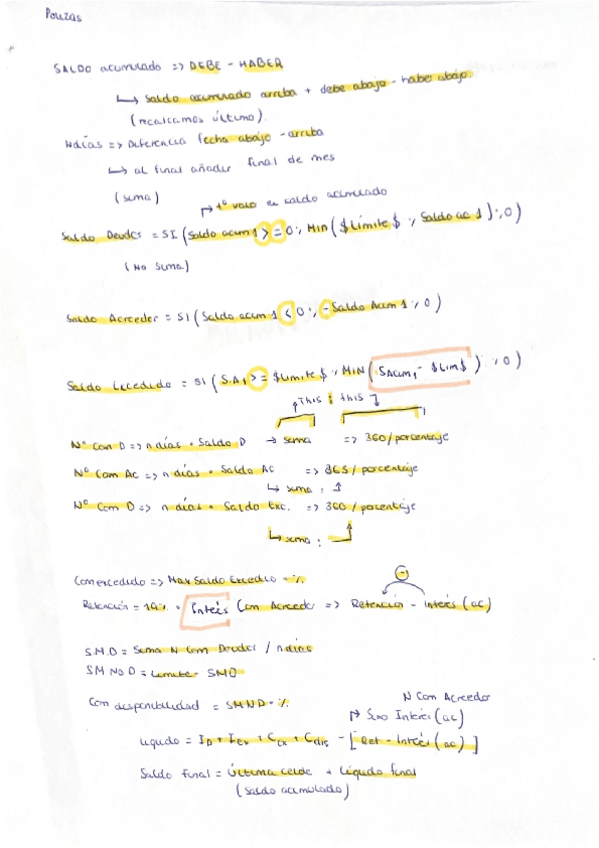 Pouzas
SALDO acumulado => DEBE - HABER
↳ Saldo acumulado arriba + debe abajo - haber abajo.
(recalcamos último).
Ndías => Diferencia fecha abajo - arriba
↳ al final añadir final de mes
(suma)
↱ 1º valor en saldo acumulado
Saldo Deudor = SI (Saldo acum 1 >= 0; Min ($Límite$; Saldo ac 1); 0)
(No suma)
Saldo Acreedor = SI (Saldo acum 1 < 0; -Saldo Acum 1; 0)
Saldo Excedido = SI (S.A1 >= $Limite$; MIN (SAcum1 - $Lim$); 0)
↑ This : this ↴
Nº Com D => n días * Saldo D → suma => 360 / porcentaje
Nº Com Ac => n días * Saldo Ac => 365 / porcentaje
↳ suma : ↑
Nº Com D => n días * Saldo Exc. => 360 / porcentaje
↳ suma :
Com excedido => Max Saldo Excedido * %
-
Retención = 19% * Interés Com Acreedor => Retención - interés (ac)
S.M.D = Suma N Com Deudor / n días
SM NO D = Limite - SMD
Com disponibilidad = SMND * %
N Com Acreedor
↱ Sino Interés (ac)
Liquido = ID + IEx + CEx + Cdis - [Ret - Interés (ac)]
Saldo Final = Última celda + Líquido final
(saldo acumulado)